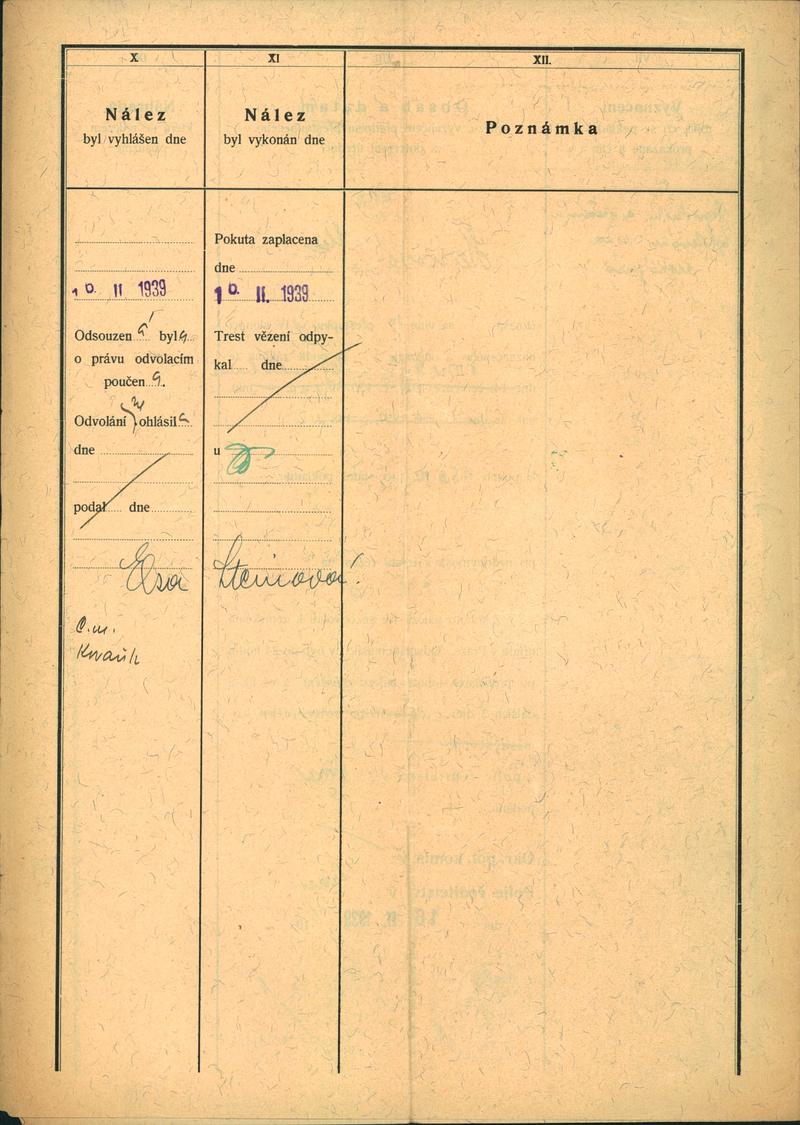 X
XI
XII.
Nález
byl vyhlášen dne
Nález
byl vykonán dne
Poznámka
10. II 1939
Odsouzen byl a
o právu odvolacím
poučen a.
Odvolání ohlásil
dne
podal dne
Pokuta zaplacena
dne
10. II. 1939
Trest vězení odpy-
kal dne
u
Elsa Steinová